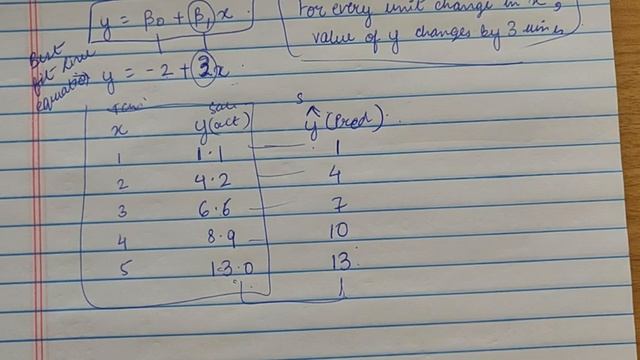 y = β₀ + β₁ x .
For every unit change in x,
value of y changes by 3 units
Best
fit line
equation
y = -2 + 3x .
x y(act) ŷ (Pred)
1 1.1 1
2 4.2 4
3 6.6 7
4 8.9 10
5 13.0 13